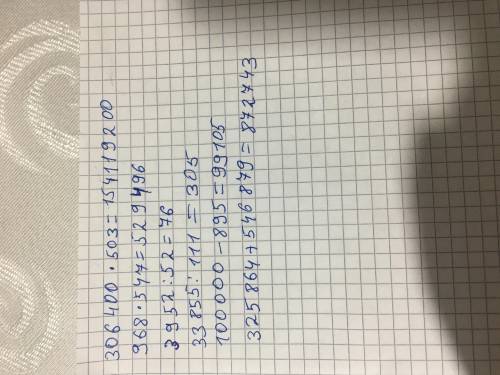 306400 · 503 = 154119200
968 · 547 = 529496
3952 : 52 = 76
33855 : 111 = 305
100000 - 895 = 99105
325864 + 546879 = 872743